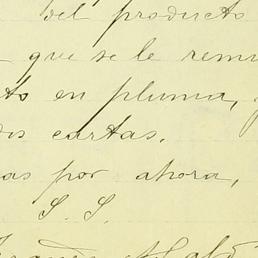 del producto
que se le remi
to en pluma,
dos cartas.
as por ahora,
S. S.